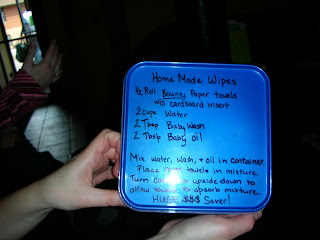 Home Made Wipes
1/2 Roll Bounty Paper towels
w/o cardboard insert
2 cups Water
2 Tbsp Baby Wash
2 Tbsp Baby Oil
Mix water, wash, + oil in container
Place towels in mixture
Turn upside down to
allow to absorb mixture
HUGE $$$ Saver!